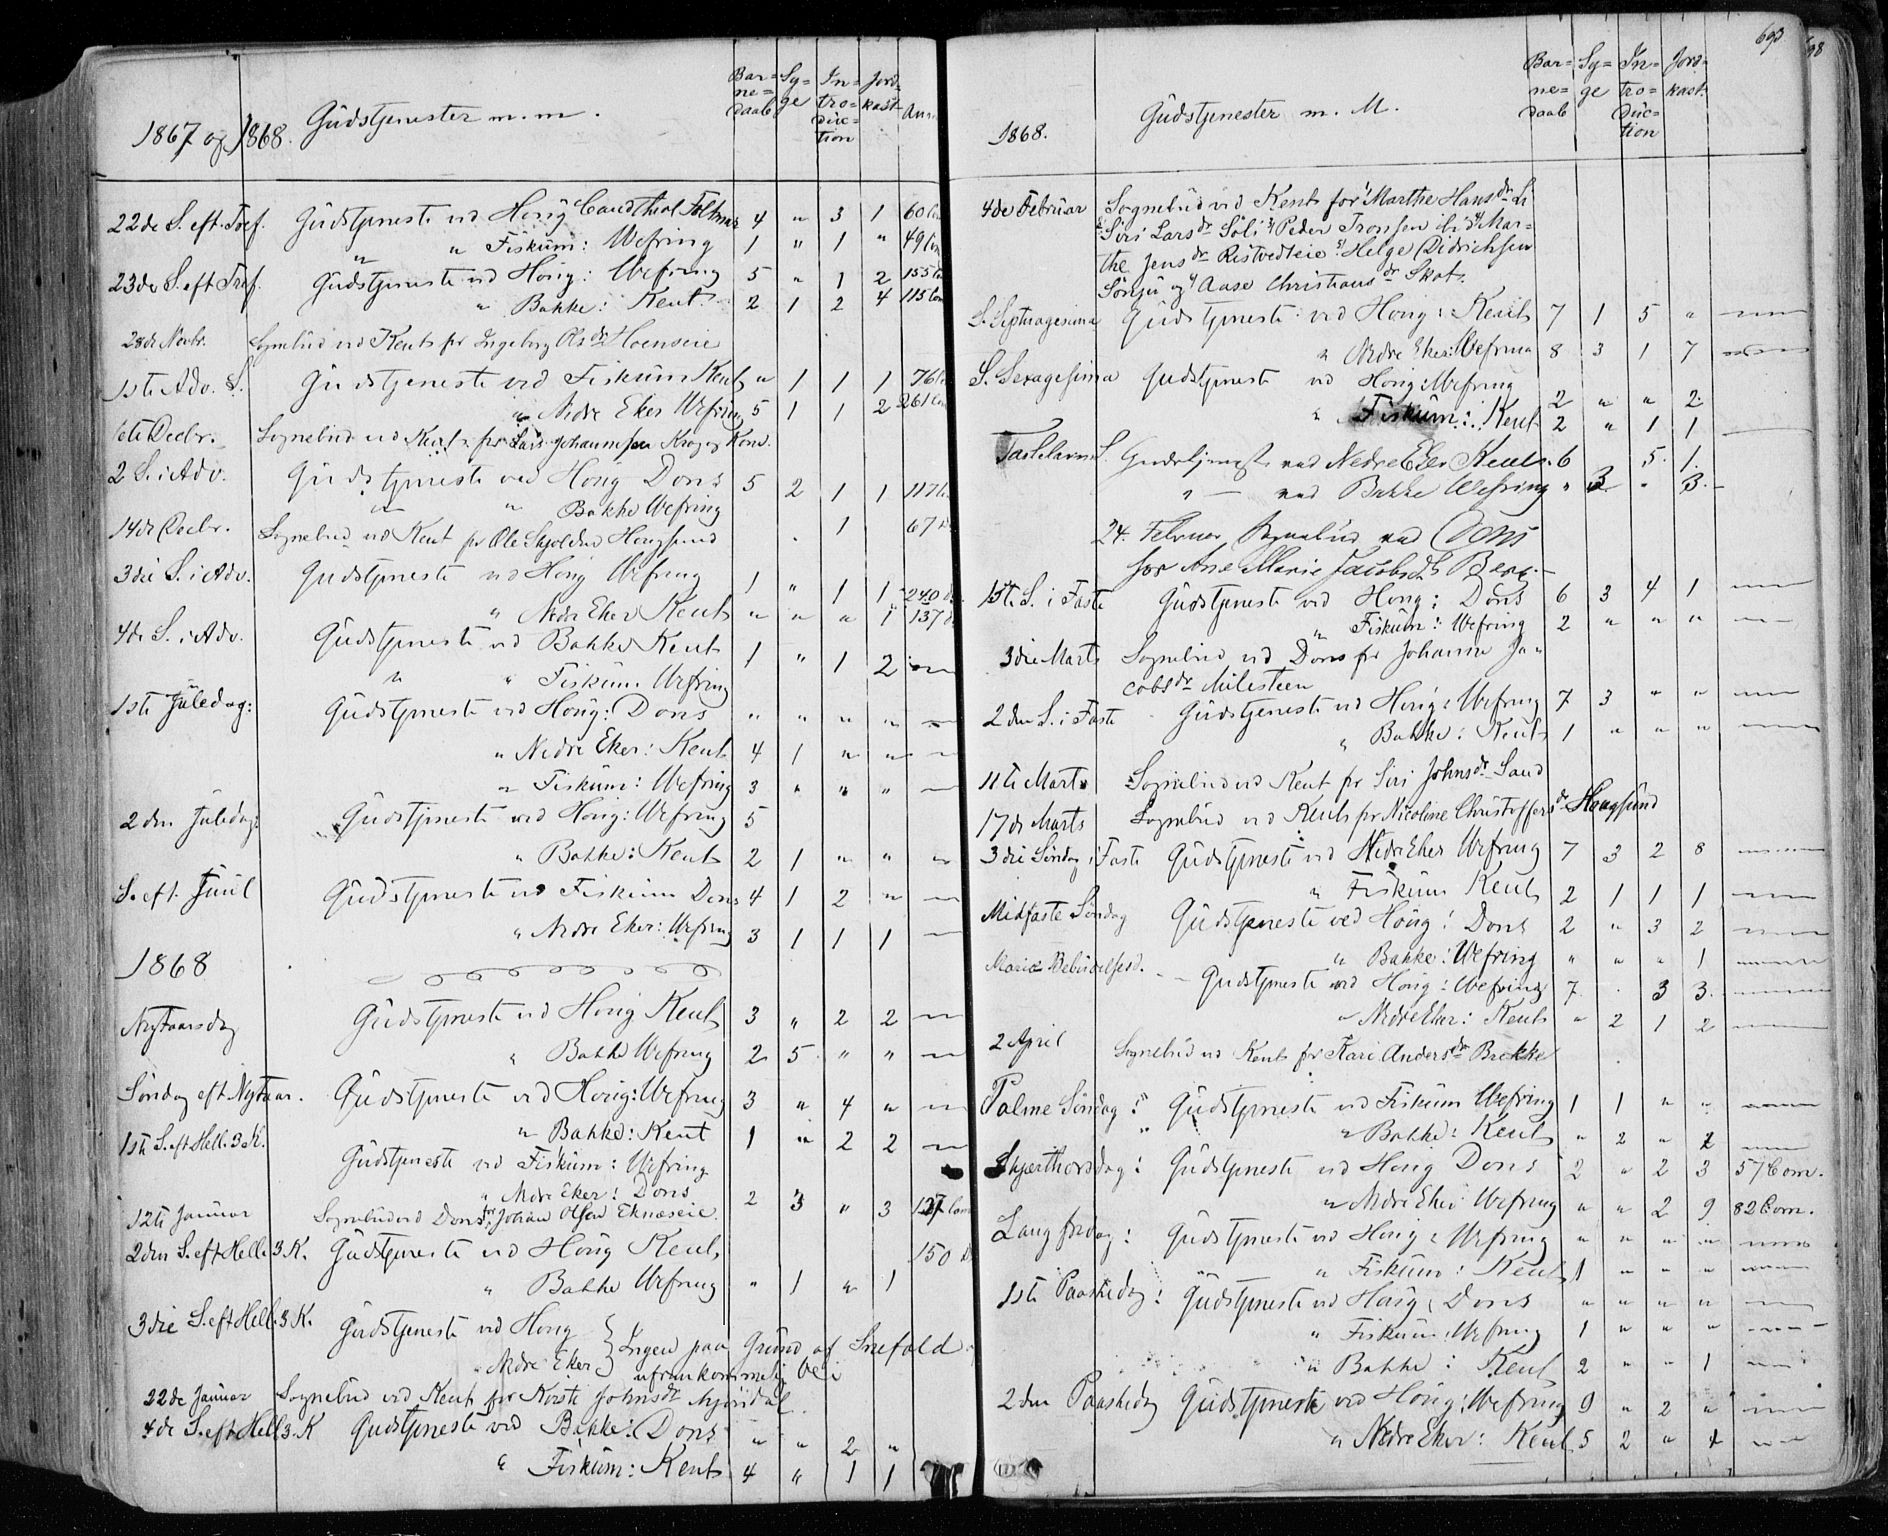 1867 og 1868. Gudstjenester m. m. Barnedaab Syge Introduction Jordkast
22de S. eft. Tref. Gudstjeneste ved Houg Cand theol 4 " 3 1 60
" " Fiskum: Wefring 1 " 1 " 49
23de S. eft Tref. Gudstjeneste ved Houg: Wefring 5 " 1 2 155
" Bakke: Kent 2 1 2 4 115
28de Novbr. Sognebud ved Kent for Ingeborg Olsdr Hoenseie
1ste Adv. S. Gudstjeneste ved Fiskum Kent " 1 1 1 76
" Nedre Eker Wefring 5 1 1 2 261
6te Decbr. Sognebud ved Kent for Lars Johannesen og Kone
2 S. i Adv. Gudstjeneste ved Houg Dons 5 2 1 1 117
" " Bakke Wefring 1 67
14de Decbr. Sognebud ved Kent for Ole Haugsund
3die S. i Adv. Gudstjeneste ved Houg Wefring 1 " 1 1 240
" Nedre Eker Kent " " " 1 137
4de S. i Adv. Gudstjeneste ved Bakke Kent 1 " 1 2
" " Fiskum Wefring
1ste Juledag: Gudstjeneste ved Houg: Dons " " " "
" Nedre Eker: Kent 4 1 " "
" Fiskum: Wefring 3 " " "
2den Juledag: Gudstjeneste ved Houg: Wefring 5
" Bakke: Kent 2 1 " " "
S. eft. Juul Gudstjeneste ved Fiskum Dons 4 1 2 "
" Nedre Eker: Wefring 3 1 1 1
1868
Nytaarsdag Gudstjeneste ved Houg Kent 3 " 2 2
" Bakke Wefring 2 5 " "
Søndag eft Nytaar. Gudstjeneste ved Houg: Wefring 3 " 4 "
" Bakke: Kent 1 " 2 2
1ste S. eft Hell. 3 K. Gudstjeneste ved Fiskum: Wefring
" Nedre Eker: Dons 2 3 " 3 127
12te Januar Sognebud ved Dons for Johan Olsen Eknæseie.
2den S. eft Hell. 3 K. Gudstjeneste ved Houg Kent 150
" Bakke Wefring " 1 " 1
3die S. eft Hell. 3 K. Gudstjeneste ved Houg } Ingen paa Grund af Snefald
" Nedre Eker } ufremkommelig Vei
22de Januar Sognebud ved Kent for Kirsti Johnsdr
4de S. eft Hell 3. K Gudstjeneste ved Bakke: Dons " " 2 "
" Fiskum: Kent 4 " 1 1
693
1868. Gudstjenester m. M. Barnedaab Syge Introduction Jordkast.
4de Februar Sognebud ved Kent for Marthe Hansdr Li
Siri Larsdr Søli Peder Tronsen ibid Mar-
the Jensdr Ristvedteie Helge Didrichsen
og Aase Christiansdr Skot.
S. Septuagesima Gudstjeneste ved Houg: Kent 7 1 5 "
" Nedre Eker: Wefring 8 3 1 7
S. Sexagesima Gudstjeneste ved Houg: Wefring 2 " " 2
" Fiskum: Kent 2 " 1 1
Fastelavns S. Gudstjeneste ved Nedre Eker Kent. 6 5. 1.
" — ved Bakke Wefring " 3 " 3.
24. Februar Sognebud ved Dons
for Ane Marie Jacobsdr Berg.
1ste S. i Faste Gudstjeneste ved Houg: Dons 6 3 4 1
" Fiskum: Wefring 2 " " "
3die Marts Sognebud ved Dons for Johanne Ja-
cobsdr Milesteen
2den S. i Faste Gudstjeneste ved Houg: Wefring 7 3 " "
" Bakke: Kent 1 " " "
11te Marts Sognebud ved Kent for Siri Johnsdr Sand
17de Marts Sognebud ved Kent for Nicoline Christoffersdr Haugsund
3die Søndag i Faste Gudstjeneste ved Nedre Eker Wefring 7 3 2 8
" Fiskum Kent 2 1 1 1
Midfaste Søndag Gudstjeneste ved Houg: Dons 2 " 3 2
" Bakke: Wefring " " " 1
Mariæ Bebudelsesd. Gudstjeneste ved Houg: Wefring 7 . 3 3.
" Nedre Eker: Kent " 2 1 2
2 April Sognebud ved Kent for Kari Andersdr Bakke
Palme Søndag: Gudstjeneste ved Fiskum Wefring 1 1 " "
" Bakke: Kent " 2 " 2
Skjærthorsdag: Gudstjeneste ved Houg Dons 2 " 2 3 57 Com.
" Nedre Eker Wefring " " 2 9 82 Com.
Langfredag: Gudstjeneste ved Houg: Wefring " " " "
" Fiskum: Kent 1 " " "
1ste Paaskedag: Gudstjeneste ved Houg: Dons " " " "
" Fiskum: Wefring 1 " " "
" Bakke: Kent 2 " " 1
2den Paaskedag Gudstjeneste ved Houg: Wefring 9 " 2 "
" Nedre Eker: Kent 5 2 " 4